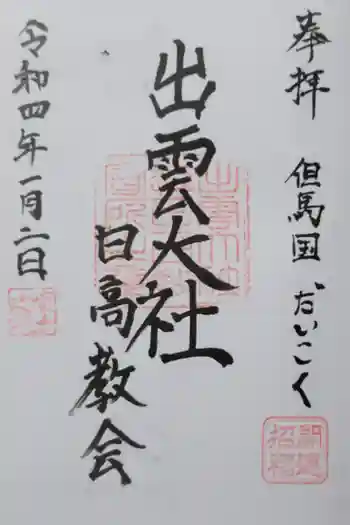 奉拝
但馬国 だいこく
出雲大社
日高教会
令和四年一月二日
開運
招福